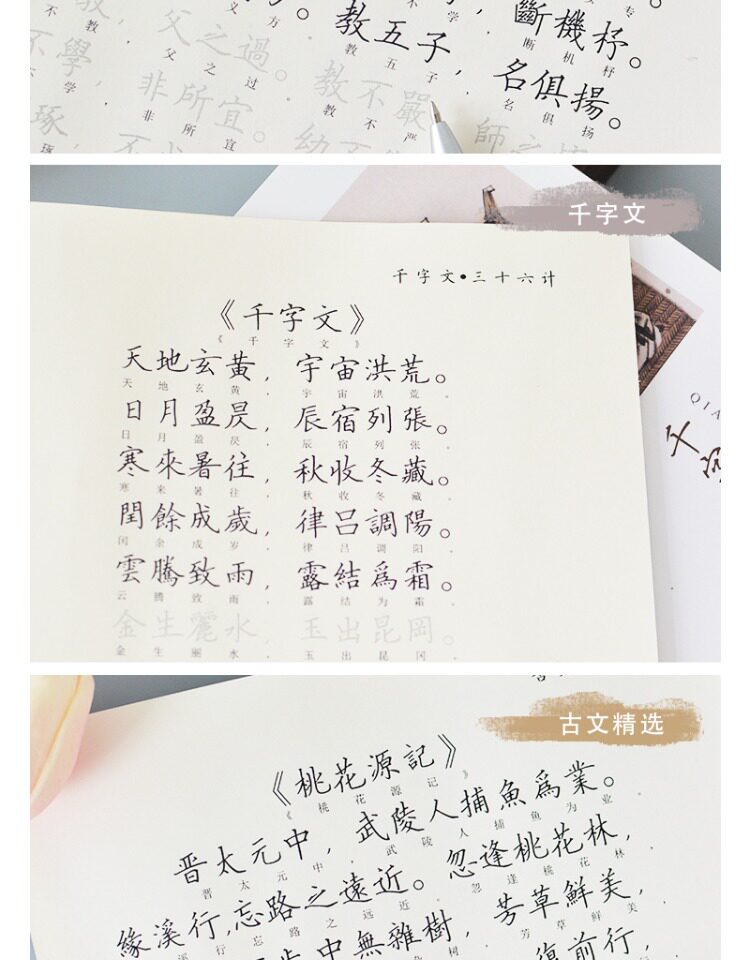 教五子，
教五子，
斷機杼。
断机杼
名俱揚。
名俱扬
父之過。
父之过。
教不嚴
教不严
非所宜。
非所宜
不學，
琢
千字文
千字文•三十六计
《千字文》
《千字文》
天地玄黄，宇宙洪荒。
天地玄黄，宇宙洪荒。
日月盈昃，辰宿列張。
日月盈昃，辰宿列张。
寒來暑往，秋收冬藏。
寒来暑往，秋收冬藏。
閏餘成歲，律吕調陽。
闰余成岁，律吕调阳。
雲騰致雨，露結爲霜。
云腾致雨，露结为霜。
金生麗水，玉出昆岡。
金生丽水，玉出昆冈。
QIA
千字
古文精选
《桃花源記》
《桃花源记》
晋太元中，武陵人捕魚爲業。
晋太元中，武陵人捕鱼为业。
緣溪行，忘路之遠近。忽逢桃花林，
溪行忘路之远近。忽逢桃花林，
中無雜樹，芳草鮮美，
杂树，芳草鲜美，
復前行，